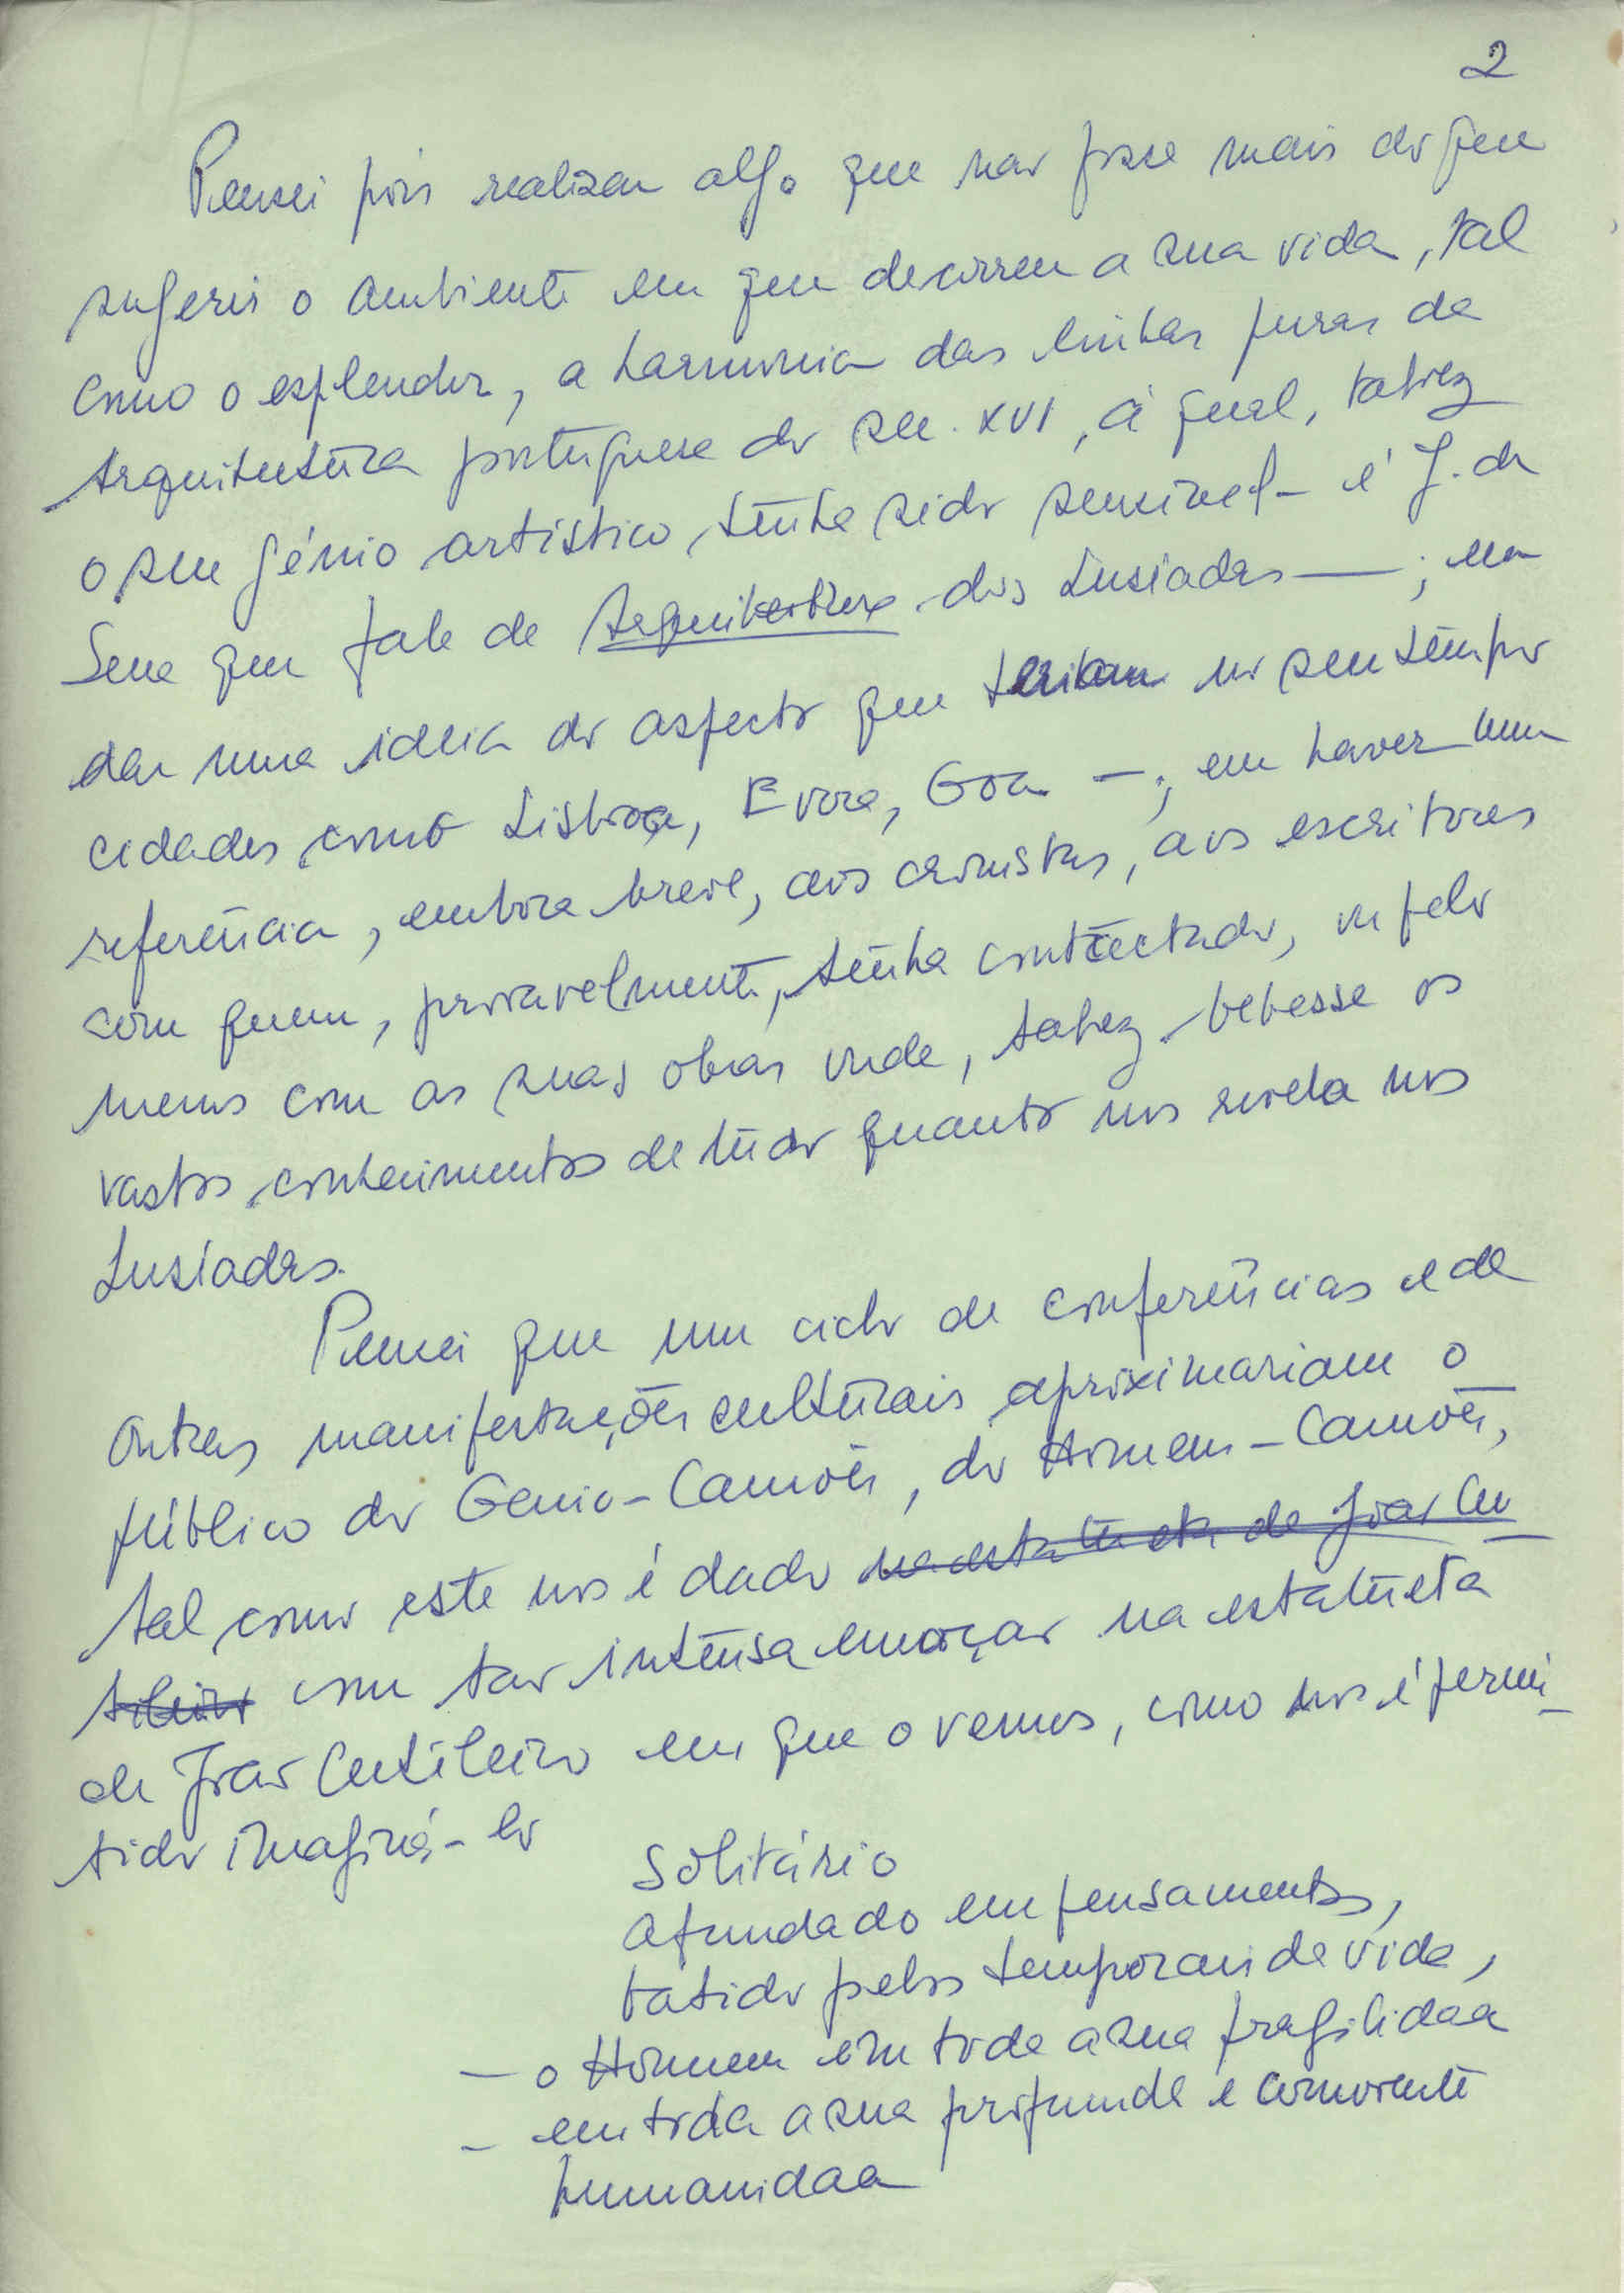 2
Pensei pois realizar algo que não fosse mais do que
sugerir o ambiente em que decorreu a sua vida, tal
como o esplendor, a harmonia das linhas puras da
Arquitectura portuguesa do sec. XVI, à qual, talvez
o seu génio artístico, tenha sido sensível – é J. de
Sena que fala de Arquitectura dos Lusiadas — ; em
dar uma ideia do aspecto que teriam no seu tempo
cidades como Lisboa, Evora, Goa – ; em haver uma
referência, embora breve, aos cronistas, aos escritores
com quem, provavelmente, tenha contactado, ou pelo
menos com as suas obras onde, talvez bebesse os
vastos conhecimentos de tudo quanto nos revela nos
Lusíadas.
Pensei que um ciclo de conferências e de
outras manifestações culturais aproximariam o
público do Genio-Camões, do Homem-Camões,
tal como este nos é dado na estatueta de João Cu
tileiro com tão intensa emoção na estatueta
de João Cutileiro em que o vemos, como nos é permi_
tido imaginá-lo
Solitário
afundado em pensamentos,
batido pelos temporais da vida,
— o Homem em toda a sua fragilidade
– em toda a sua profunda e comovente
humanidade